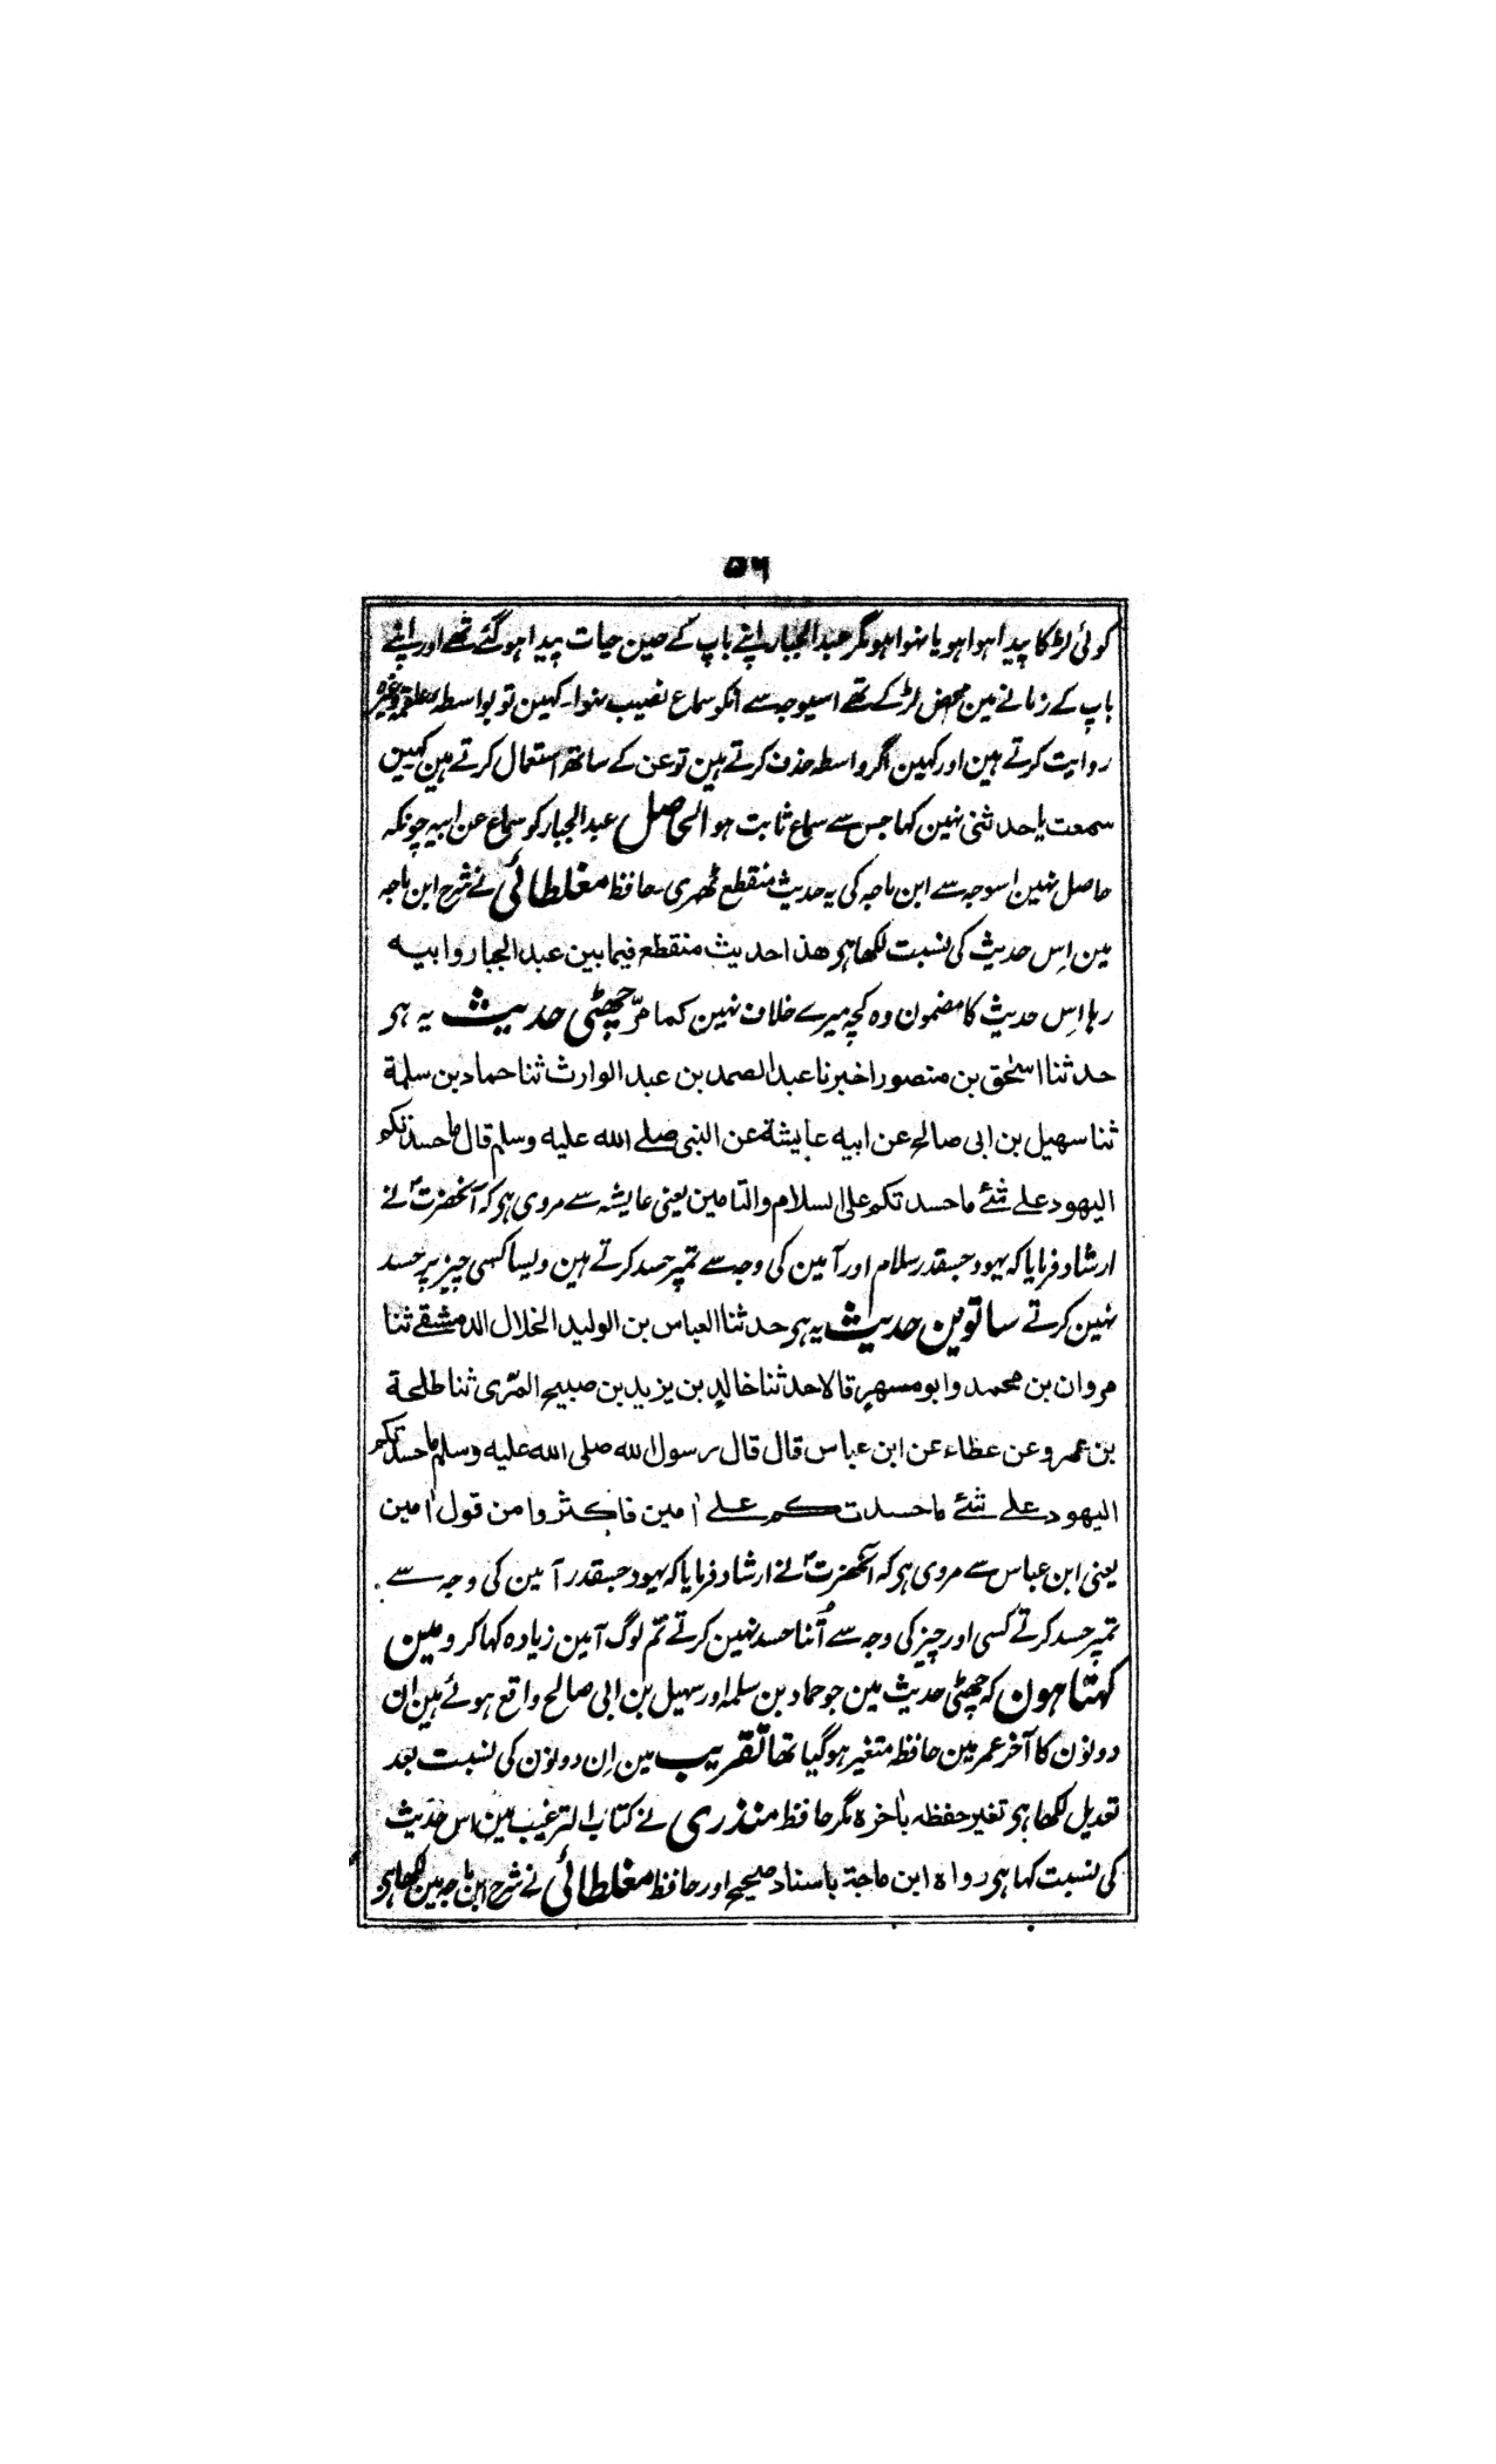 ۵۶
کوئی لڑکا پیدا ہوا ہو یا نہوا ہو مگر عبدالجبار اپنے باپ کے حین حیات پیدا ہو گئے تھے اور اپنے
باپ کے زمانے مین محض لڑکے تھے اسیوجہ سے انکو سماع نصیب نہوا۔ کہین تو بواسطہ علقمہ وغیرہ
روایت کرتے ہین اور کہین اگر واسطہ حذف کرتے ہین تو عن کے ساتھ استعمال کرتے ہین کہین
سمعت یا حدثنی نہین کہا جس سے سماع ثابت ہو الحاصل عبدالجبار کو سماع عن ابیہ چونکہ
حاصل نہین اسوجہ سے ابن ماجہ کی یہ حدیث منقطع ٹھہری۔ حافظ مغلطائی نے شرح ابن ماجہ
مین اِس حدیث کی نسبت لکھا ہی ھذا حدیث منقطع فیما بین عبد الجبار وابیہ
رہا اِس حدیث کا مضمون وہ کچھ میرے خلاف نہین کما مرّ چھٹی حدیث یہ ہی
حدثنا اسحٰق بن منصور اخبرنا عبد الصمد بن عبد الوارث ثنا حماد بن سلمة
ثنا سھیل بن ابی صالح عن ابیہ عایشة عن النبی صلے اللہ علیہ وسلم قال ما حسدتکم
الیھود علے شئے ما حسدتکم علی السلام والتامین یعنی عایشہ سے مروی ہی کہ آنحضرتؐ نے
ارشاد فرمایا کہ یہود جسقدر سلام اور آمین کی وجہ سے تمپر حسد کرتے ہین ویسا کسی چیز پر حسد
نہین کرتے ساتوین حدیث یہ ہی حدثنا العباس بن الولید الخلال الدمشقے ثنا
مروان بن محمد وابو مسھر قالا حدثنا خالد بن یزید بن صبیح المرّی ثنا طلحة
بن عمرو عن عطاء عن ابن عباس قال قال رسول اللہ صلی اللہ علیہ وسلم ما حسدتکم
الیھود علے شئے ما حسدتکم علے اٰمین فاکثروا من قول اٰمین
یعنی ابن عباس سے مروی ہی کہ آنحضرتؐ نے ارشاد فرمایا کہ یہود جسقدر آمین کی وجہ سے
تمپر حسد کرتے کسی اور چیز کی وجہ سے اُتنا حسد نہین کرتے تم لوگ آمین زیادہ کہا کرو مین
کہتا ہون کہ چھٹی حدیث مین جو حماد بن سلمہ اور سہیل بن ابی صالح واقع ہوئے ہین ان
دونون کا آخر عمر مین حافظہ متغیر ہو گیا تھا تقریب مین اِن دونون کی نسبت بعد
تعدیل لکھا ہی تغیر حفظہ باٰخرہ مگر حافظ منذری نے کتاب الترغیب مین اس حدیث
کی نسبت کہا ہی رواہ ابن ماجة باسناد صحیح اور حافظ مغلطائی نے شرح ابن ماجہ مین لکھا ہی